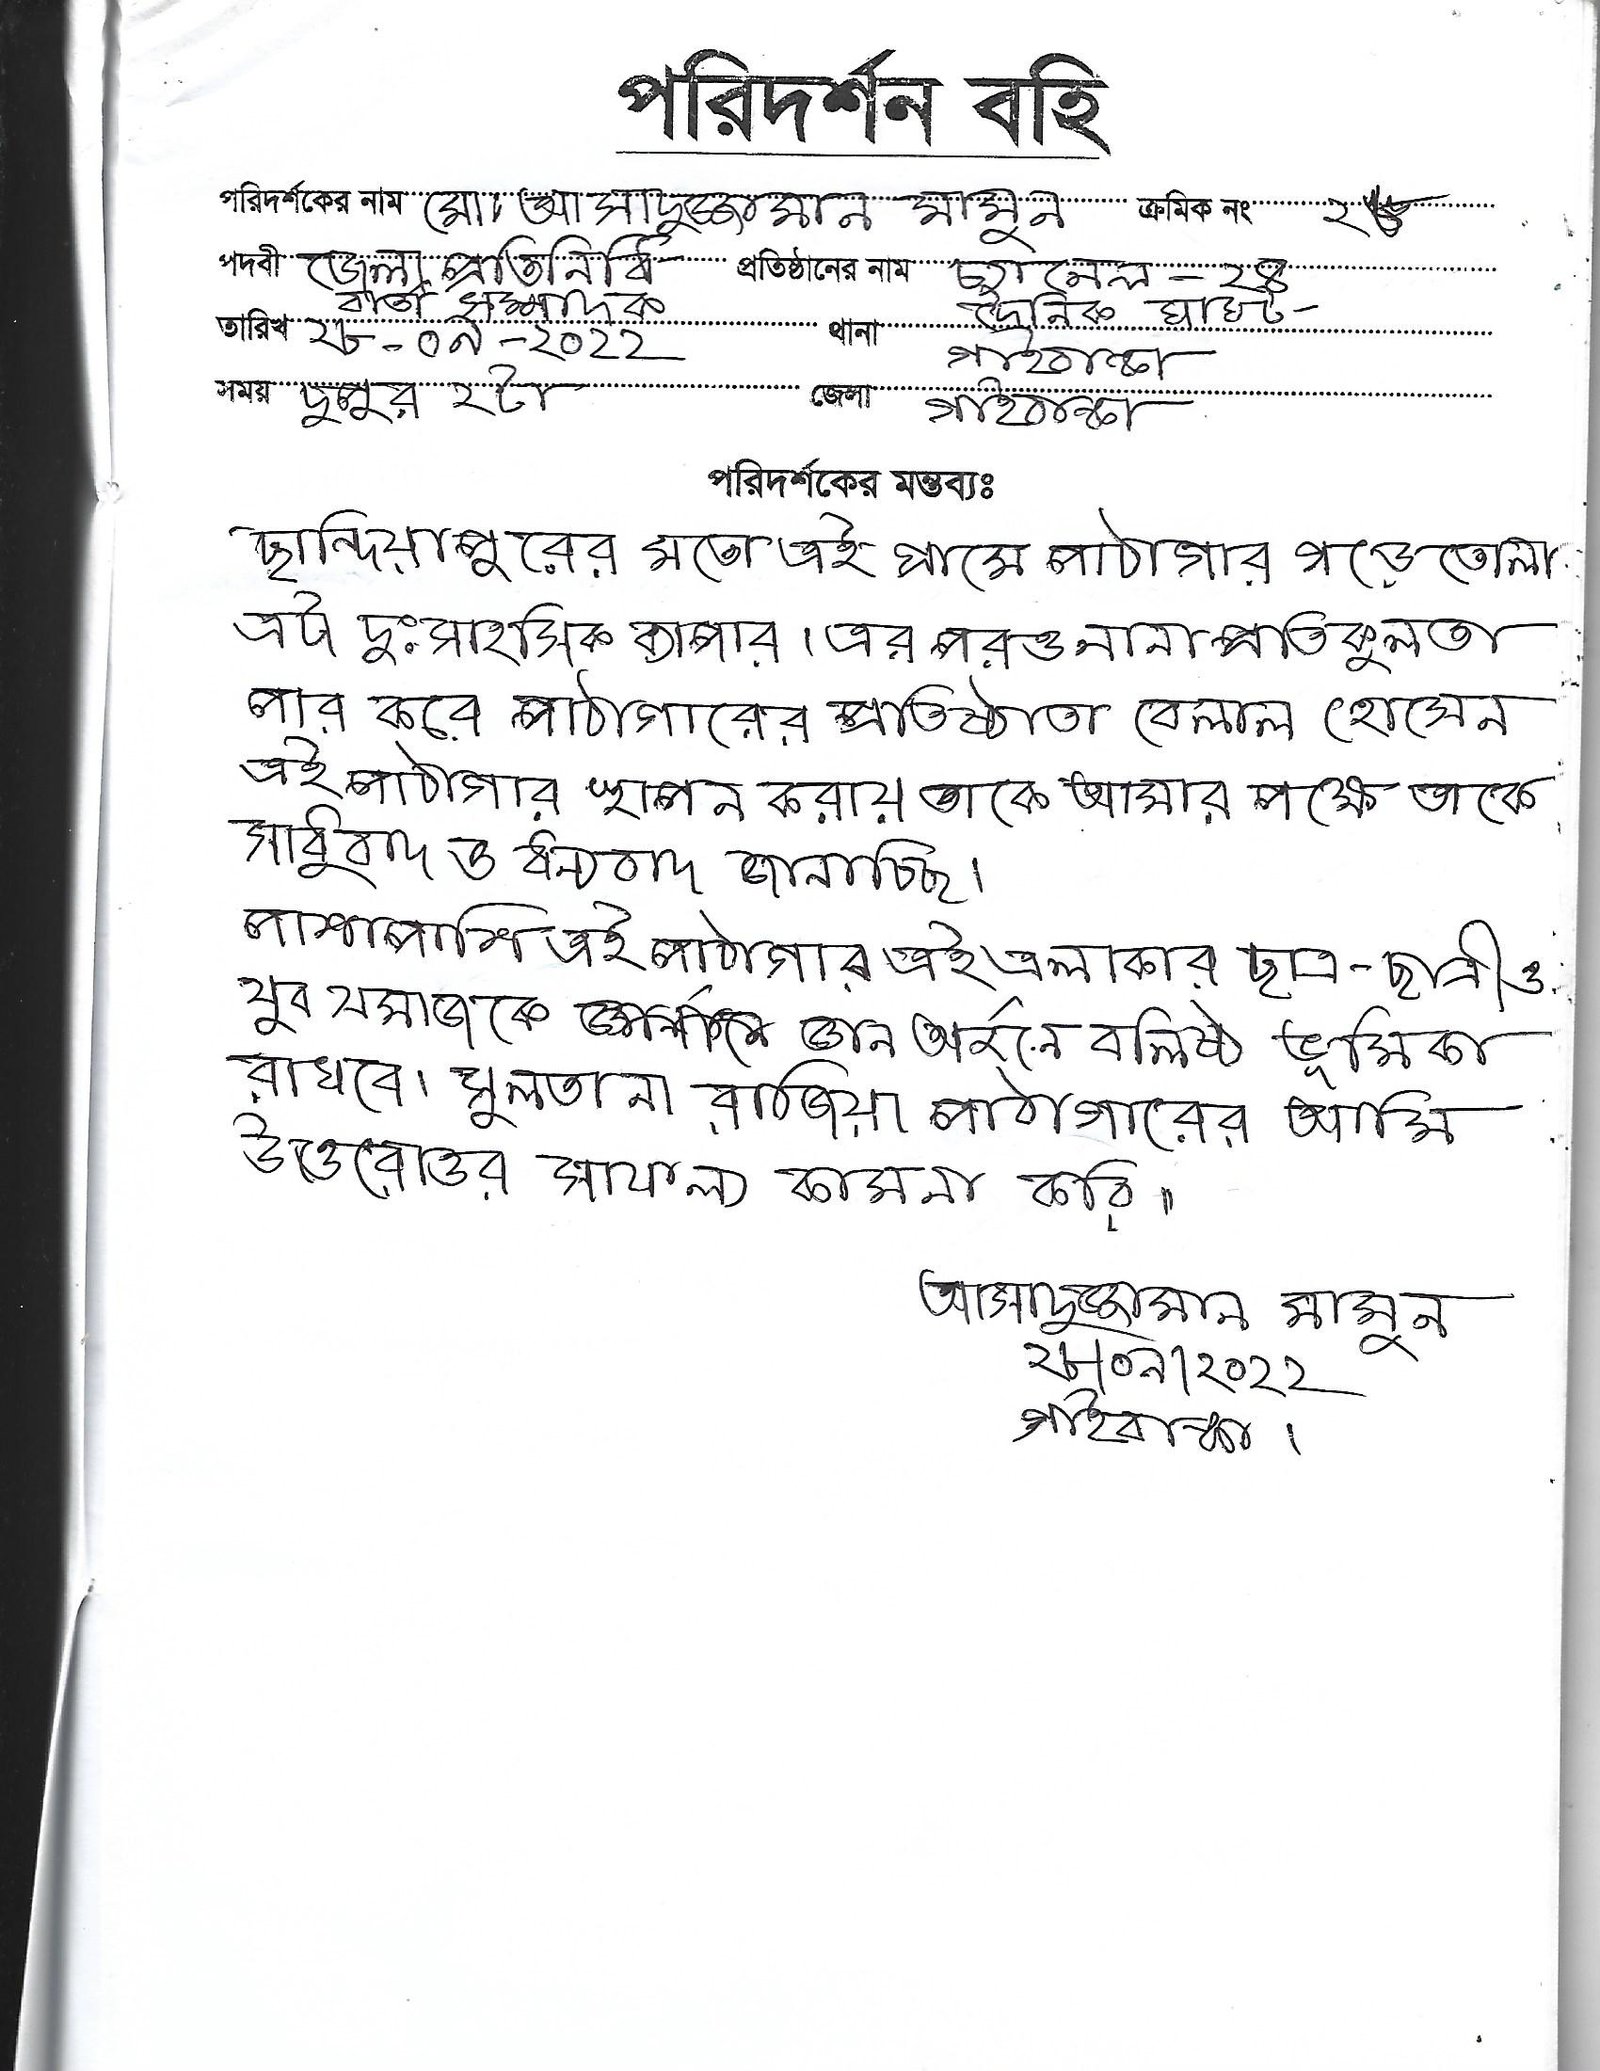 পরিদর্শন বহি
পরিদর্শকের নাম মোঃ আসাদুজ্জামান মামুন ক্রমিক নং
পদবী জেলা প্রতিনিধি প্রতিষ্ঠানের নাম চ্যানেল-২৪
বার্তা সম্পাদক দৈনিক ঘাঘট
তারিখ ২৮-০৯-২০২২ থানা গাইবান্ধা
সময় দুপুর ২টা জেলা গাইবান্ধা
পরিদর্শকের মন্তব্যঃ
ছান্দিয়াপুরের মতো এই গ্রামে পাঠাগার গড়ে তোলা
এটা দুঃসাহসিক ব্যাপার। এরপরও নানা প্রতিকুলতা
পার করে পাঠাগারের প্রতিষ্ঠাতা বেলাল হোসেন
এই পাঠাগার স্থাপন করায় তাকে আমার পক্ষে তাকে
সাধুবাদ ও ধন্যবাদ জানাচ্ছি।
পাশাপাশি এই পাঠাগার এই এলাকার ছাত্র-ছাত্রী ও
যুব সমাজকে জ্ঞান অর্জনে বলিষ্ঠ ভূমিকা
রাখবে। সুলতানা রাজিয়া পাঠাগারের আমি
উত্তরোত্তর সাফল্য কামনা করি॥
আসাদুজ্জামান মামুন
২৮/০৯/২০২২
গাইবান্ধা।